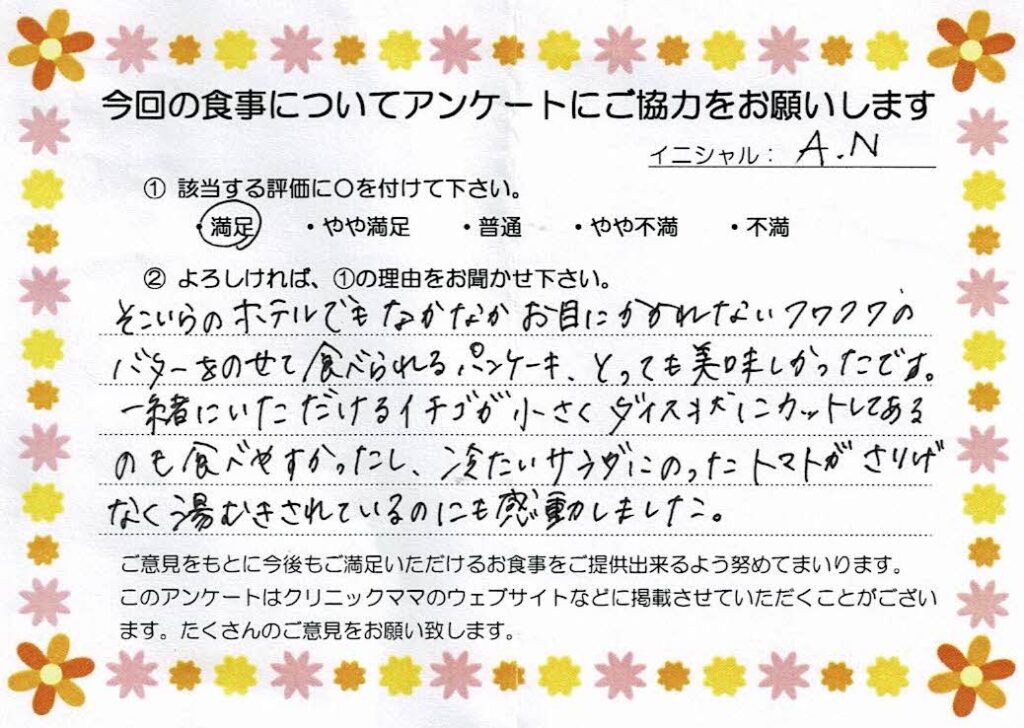 今回の食事についてアンケートにご協力をお願いします
イニシャル： A.N
① 該当する評価に〇を付けて下さい。
・満足 ・やや満足 ・普通 ・やや不満 ・不満
② よろしければ、①の理由をお聞かせ下さい。
そこいらのホテルでもなかなかお目にかかれないフワフワの
バターをのせて食べられるパンケーキ、とっても美味しかったです。
一緒にいただけるイチゴが小さくダイス状にカットしてある
のも食べやすかったし、冷たいサラダにのったトマトがさりげ
なく湯むきされているのにも感動しました。
ご意見をもとに今後もご満足いただけるお食事をご提供出来るよう努めてまいります。
このアンケートはクリニックママのウェブサイトなどに掲載させていただくことがござい
ます。たくさんのご意見をお願い致します。